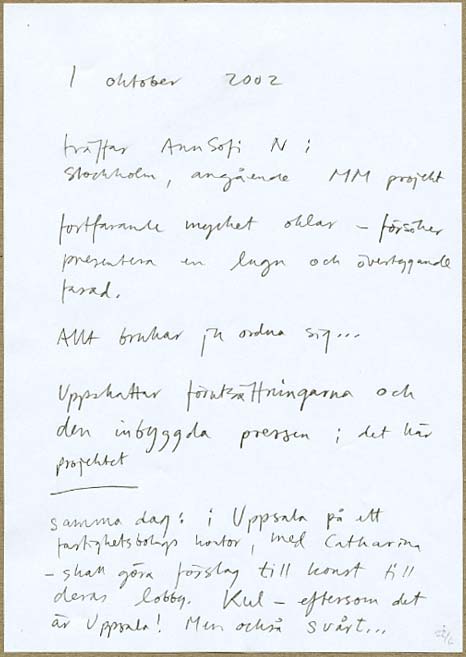 1 oktober 2002
träffar AnnSofi N i
Stockholm, angående MM projekt
fortfarande mycket oklar – försöker
presentera en lugn och övertygande
fasad.
Allt brukar ju ordna sig...
Uppskattar förutsättningarna och
den inbyggda pressen i det här
projektet
samma dag: i Uppsala på ett
fastighetsbolags kontor, med Catharina
– skall göra förslag till konst till
deras lobby. Kul – eftersom det
är Uppsala! Men också svårt...